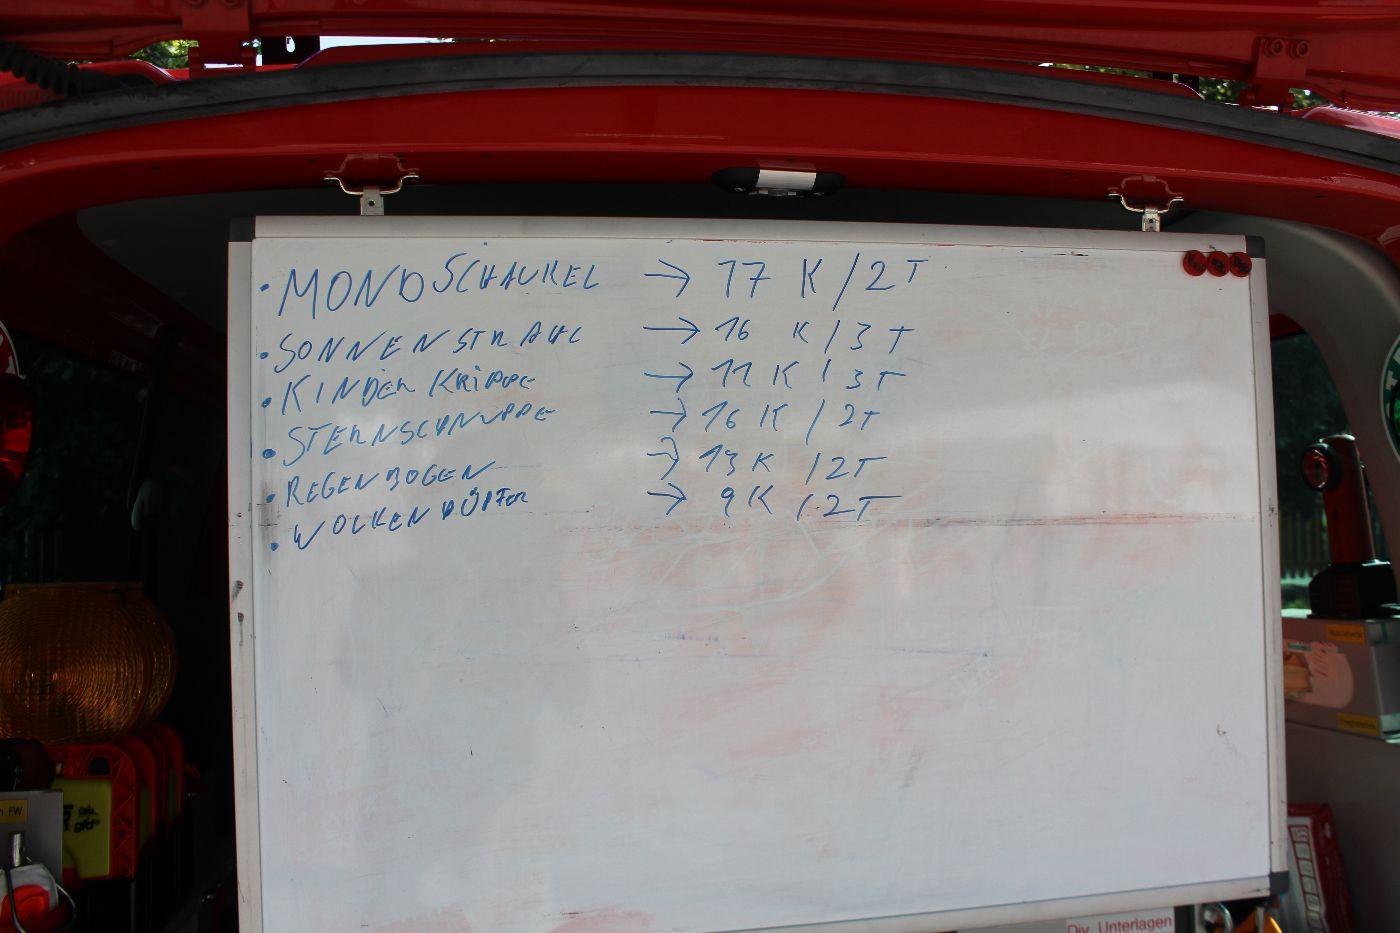 • MONDSCHAUKEL → 17 K / 2 T
• SONNENSTRAHL → 16 K / 3 T
• KINDERKRIPPE → 11 K / 3 T
• STERNSCHNUPPE → 16 K / 2T
• REGENBOGEN → 13 K / 2T
• WOLKENHÜPFER → 9 K / 2T
FW
gfd
Div. Unterlagen